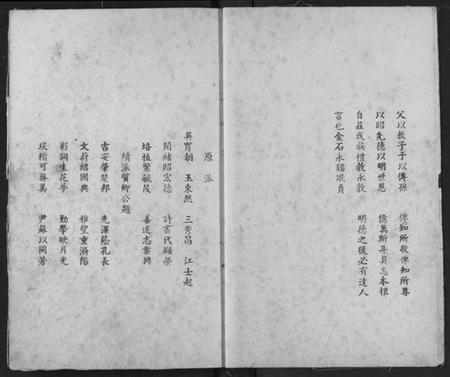 父以教子子以傳孫 俾知所敬俾知所尊
以昭先德以明世恩 億萬斯年莫忘本根
自茲我族禮教永敦 明德之後必有達人
言也金石永錫珉貞
原派
英胄朝 玉東然 三秀昌 江士起
開緒昭宏德 詩書代顯榮
培植繁毓茂 善述志業興
續派賢卿公題
吉安肇楚邦 先澤蔭孔長
文蔚紹國典 雅望重濟陽
彩詞生花夢 勤學映月光
琰楷可與美 尹蘇以同芳